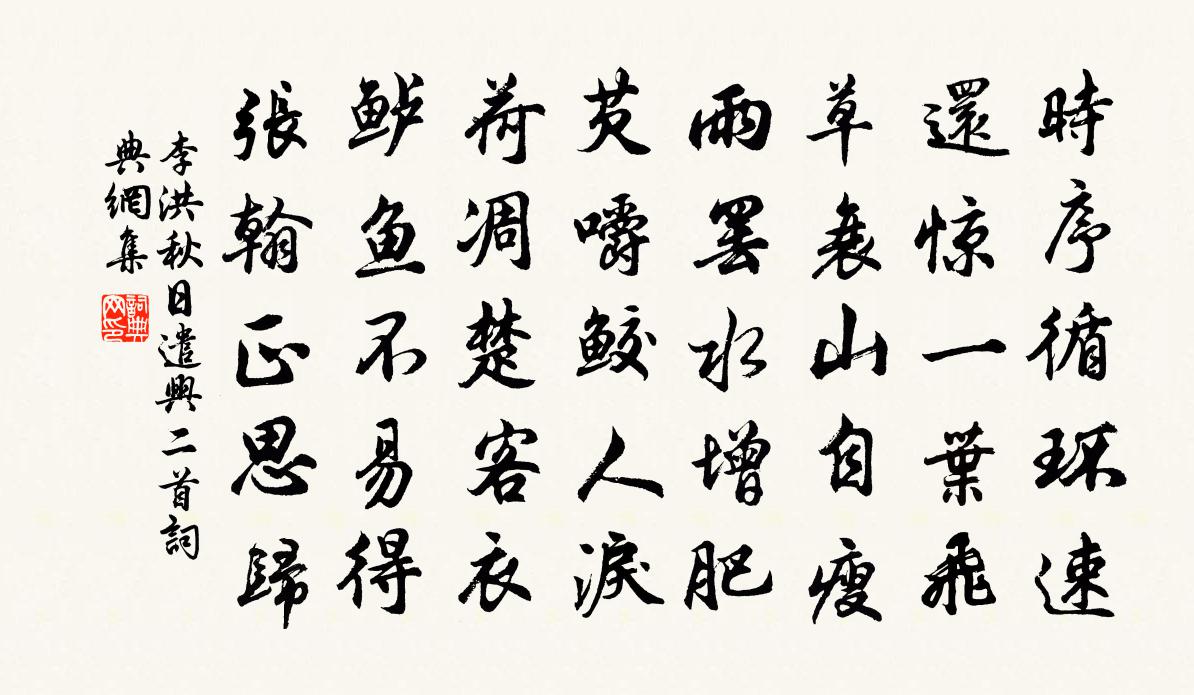 時序循环速
還惊一葉飛
草衰山自瘦
雨罢水增肥
芡嚼鲛人淚
荷凋楚客衣
鲈鱼不易得
張翰正思歸
李洪秋日遣興二首詞
典網集
詞典
网印